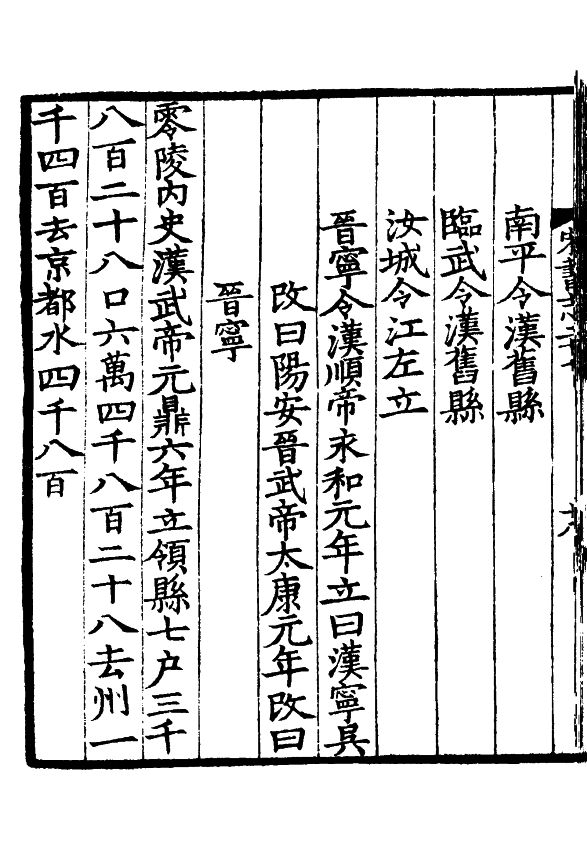 南平令漢舊縣
臨武令漢舊縣
汝城令江左立
晉寧令漢順帝永和元年立曰漢寧吳
改曰陽安晉武帝太康元年改曰
晉寧
零陵內史漢武帝元鼎六年立領縣七户三千
八百二十八口六萬四千八百二十八去州一
千四百去京都水四千八百